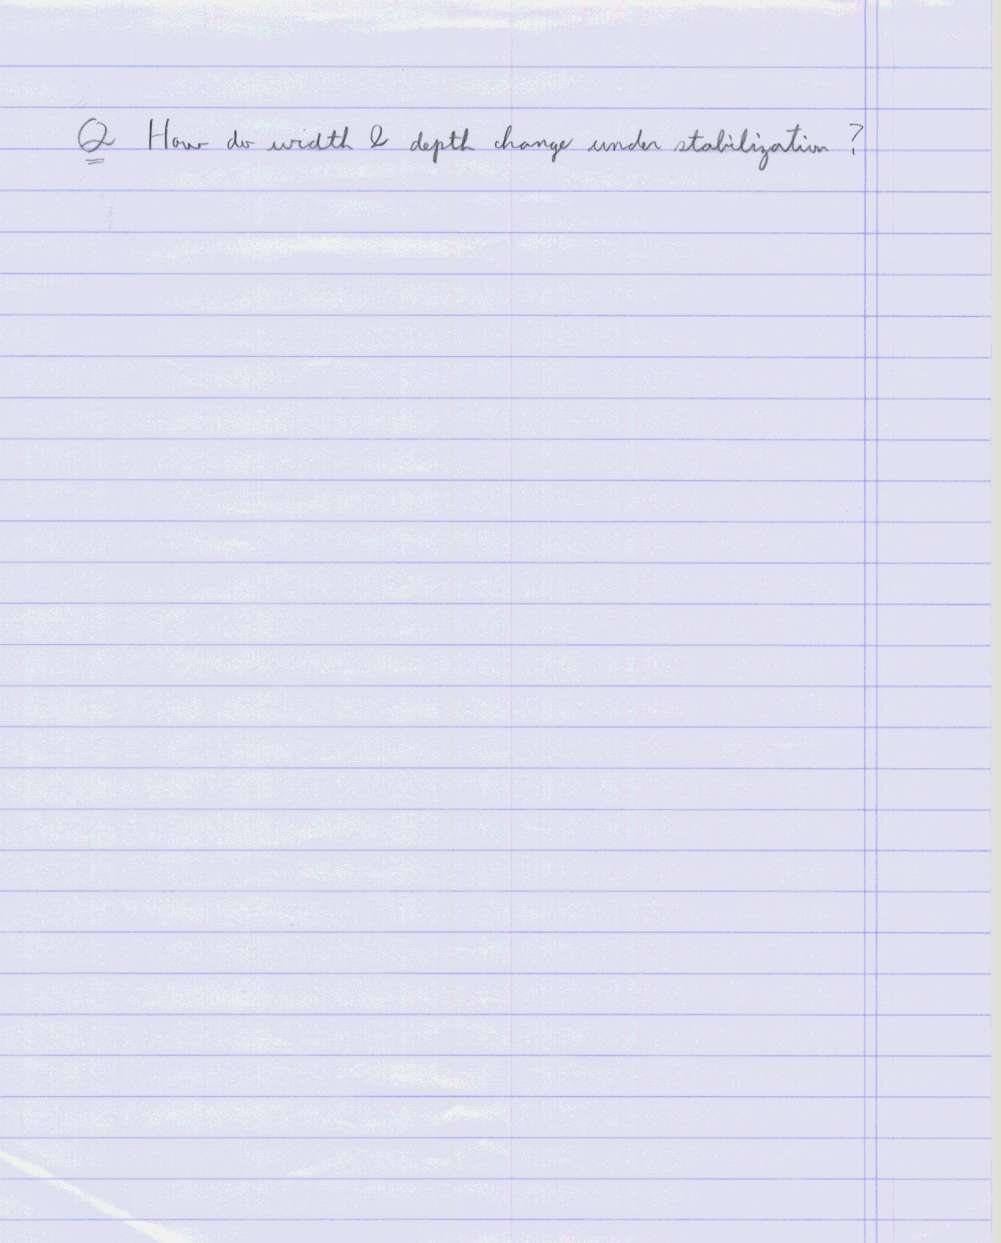 Q How do width & depth change under stabilization?